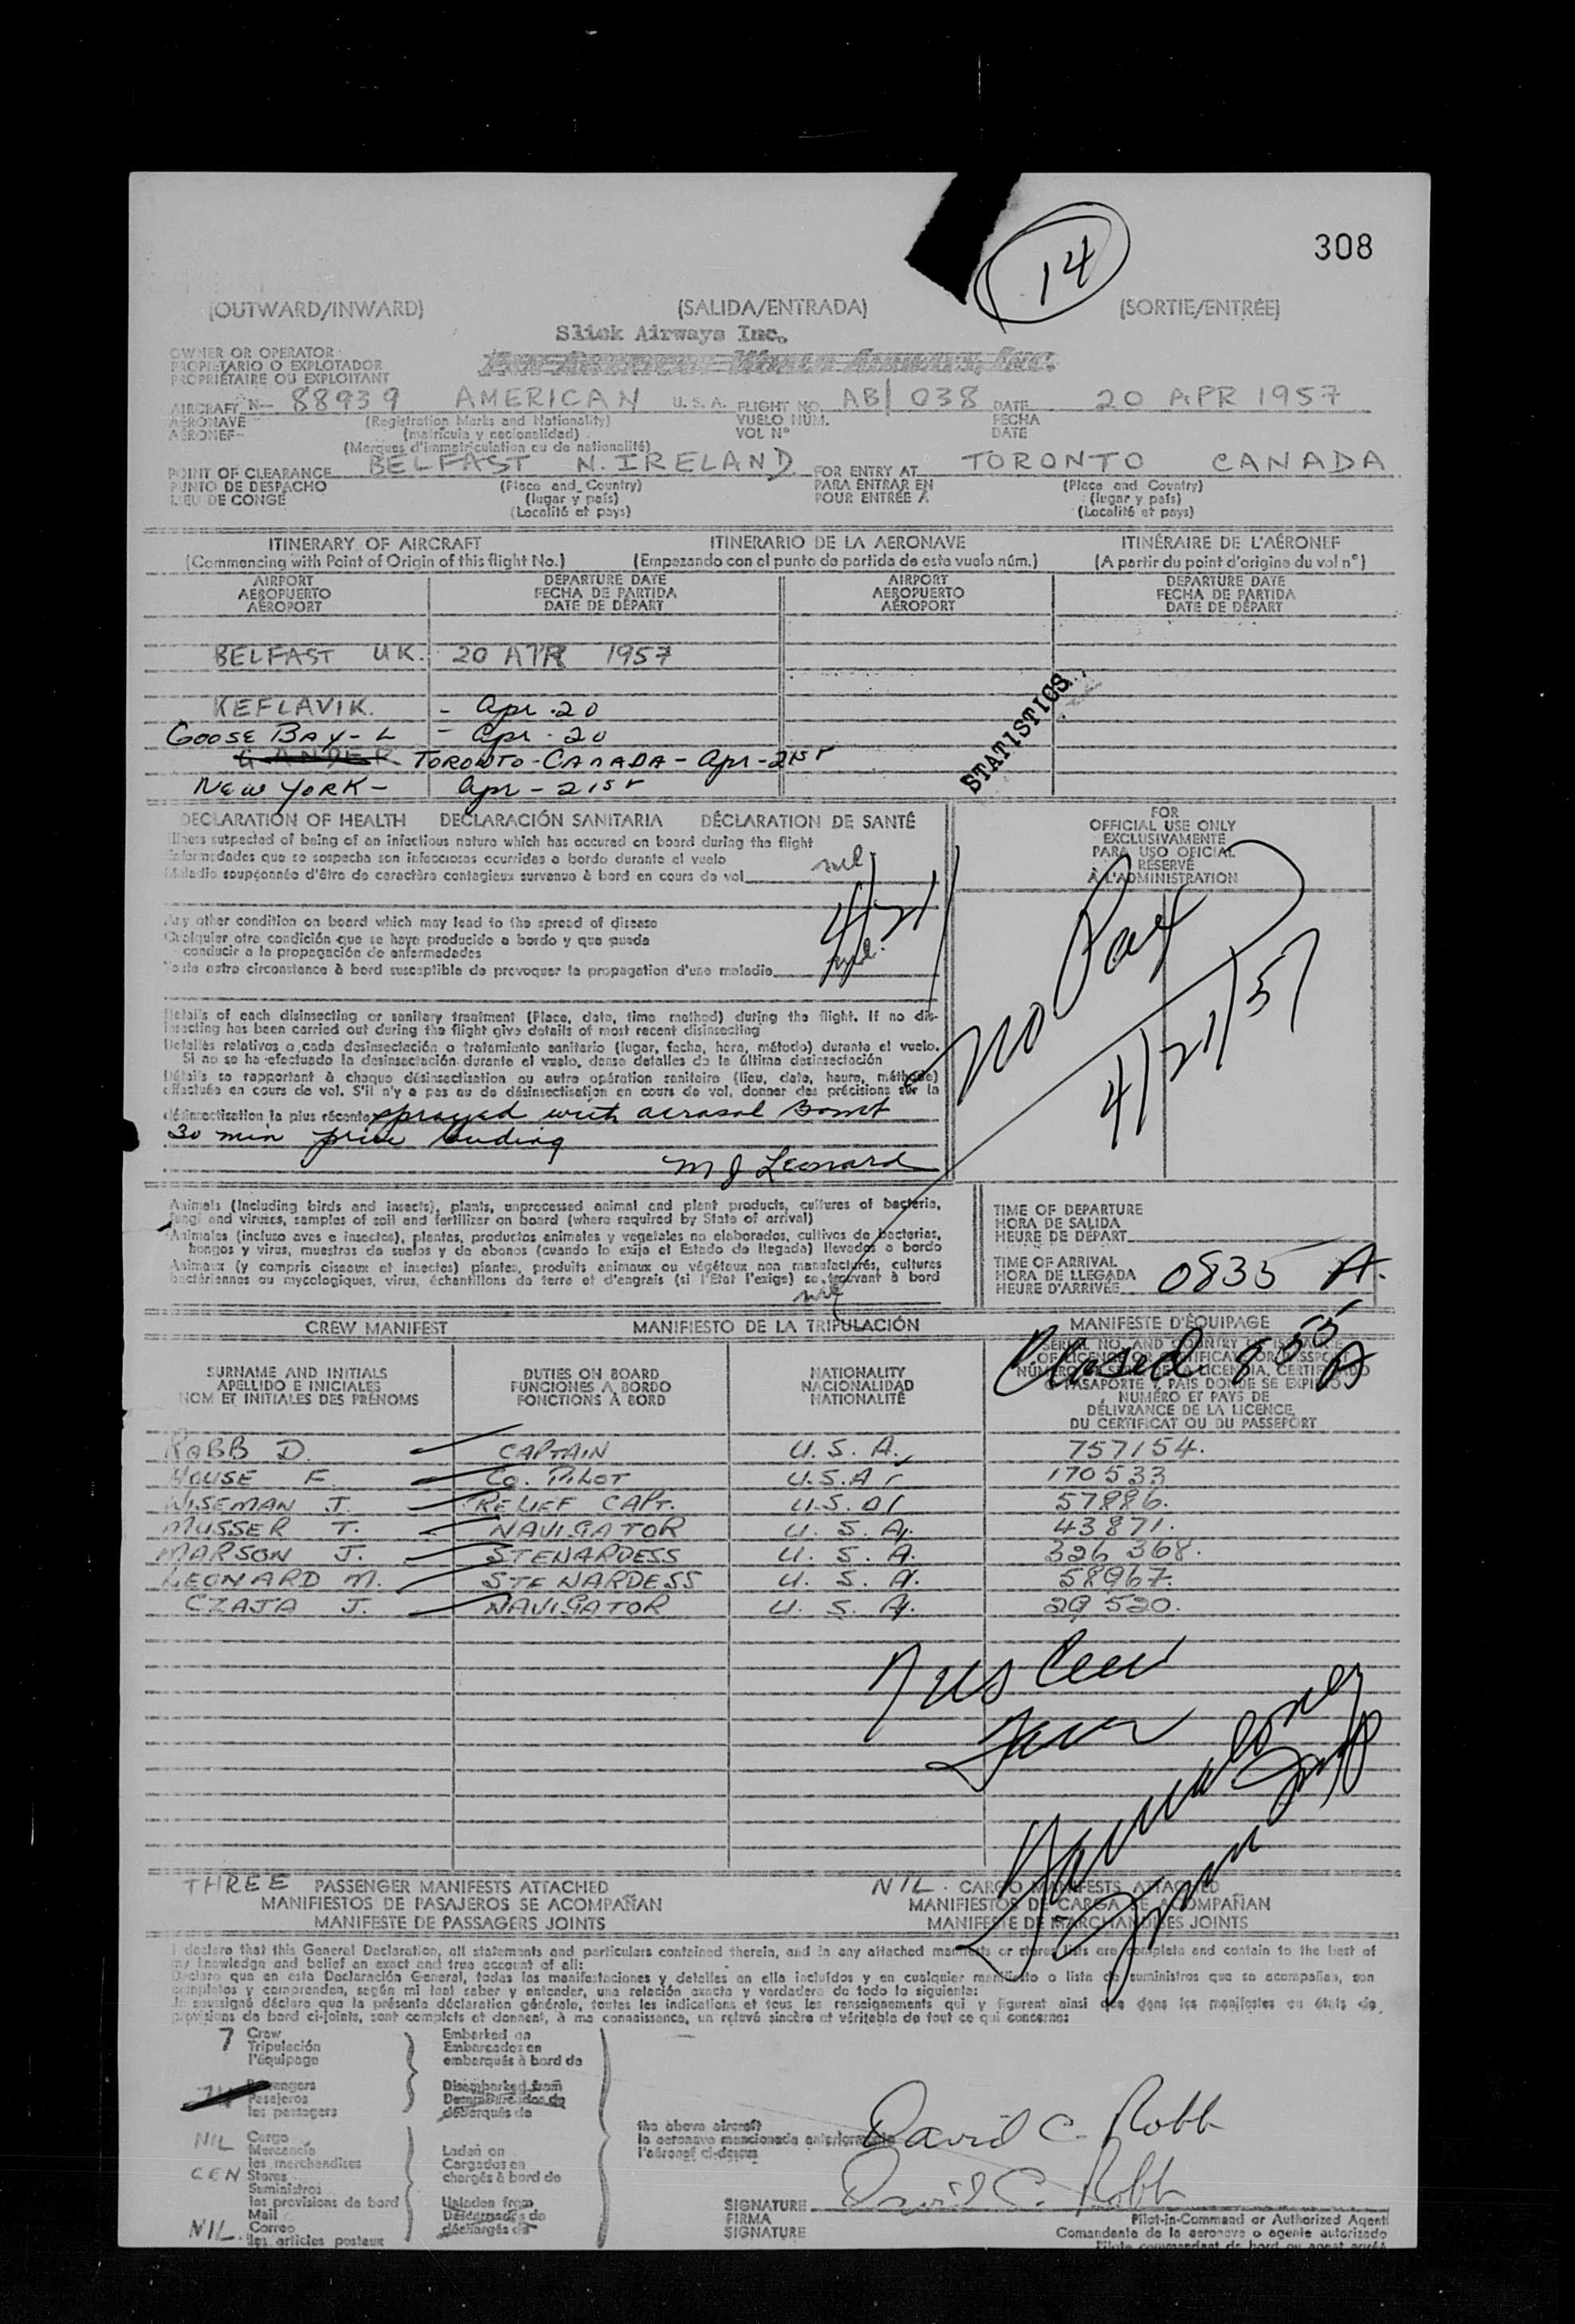 14
308
(OUTWARD/INWARD) (SALIDA/ENTRADA) (SORTIE/ENTRÉE)
Slick Airways Inc.
OWNER OR OPERATOR
PROPIETARIO O EXPLOTADOR
PROPRIÉTAIRE OU EXPLOITANT
AIRCRAFT N- 88939 AMERICAN U.S.A. FLIGHT NO. AB/038 DATE 20 APR 1957
AERONAVE (Registration Marks and Nationality) VUELO NÚM. FECHA
AÉRONEF (matrícula y nacionalidad) VOL N° DATE
(Marques d'immatriculation ou de nationalité)
POINT OF CLEARANCE BELFAST N. IRELAND FOR ENTRY AT TORONTO CANADA
PUNTO DE DESPACHO (Place and Country) PARA ENTRAR EN (Place and Country)
LIEU DE CONGÉ (lugar y país) POUR ENTRÉE À (lugar y país)
(Localité et pays) (Localité et pays)
ITINERARY OF AIRCRAFT ITINERARIO DE LA AERONAVE ITINÉRAIRE DE L'AÉRONEF
(Commencing with Point of Origin of this flight No.) (Empezando con el punto de partida de este vuelo núm.) (A partir du point d'origine du vol n°)
AIRPORT DEPARTURE DATE AIRPORT DEPARTURE DATE
AEROPUERTO FECHA DE PARTIDA AEROPUERTO FECHA DE PARTIDA
AÉROPORT DATE DE DÉPART AÉROPORT DATE DE DÉPART
BELFAST UK. 20 APR 1957
KEFLAVIK. - Apr. 20
GOOSE BAY - L - Apr. 20
GANDER TORONTO - CANADA - Apr - 21st
NEW YORK - Apr - 21st
STATISTICS
DECLARATION OF HEALTH DECLARACIÓN SANITARIA DÉCLARATION DE SANTÉ
Illness suspected of being of an infectious nature which has occured on board during the flight
Enfermedades que se sospecha son infecciosas ocurridas a bordo durante el vuelo
Maladie soupçonnée d'être de caractère contagieux survenue à bord en cours de vol nil
Any other condition on board which may lead to the spread of disease
Cualquier otra condición que se haya producido a bordo y que pueda
conducir a la propagación de enfermedades
Toute autre circonstance à bord susceptible de provoquer la propagation d'une maladie nil
4/21
Details of each disinsecting or sanitary treatment (Place, date, time method) during the flight. If no dis-
insecting has been carried out during the flight give details of most recent disinsecting
Detalles relativos a cada desinsectación o tratamiento sanitario (lugar, fecha, hora, método) durante el vuelo.
Si no se ha efectuado la desinsectación durante el vuelo, dense detalles de la última desinsectación
Détails se rapportant à chaque désinsectisation ou autre opération sanitaire (lieu, date, heure, méthode)
effectuée en cours de vol. S'il n'y a pas eu de désinsectisation en cours de vol, donner des précisions sur la
désinsectisation la plus récente sprayed with aerosol Bomb
30 min prior landing
M J Leonard
FOR
OFFICIAL USE ONLY
EXCLUSIVAMENTE
PARA USO OFICIAL
RÉSERVÉ
À L'ADMINISTRATION
No Pax
4/21/57
Animals (including birds and insects), plants, unprocessed animal and plant products, cultures of bacteria,
fungi and viruses, samples of soil and fertilizer on board (where required by State of arrival)
Animales (incluso aves e insectos), plantas, productos animales y vegetales no elaborados, cultivos de bacterias,
hongos y virus, muestras de suelos y de abonos (cuando lo exija el Estado de llegada) llevados a bordo
Animaux (y compris oiseaux et insectes) plantes, produits animaux ou végétaux non manufacturés, cultures
bactériennes ou mycologiques, virus, échantillons de terre et d'engrais (si l'État l'exige) se trouvant à bord
nil
TIME OF DEPARTURE
HORA DE SALIDA
HEURE DE DÉPART
TIME OF ARRIVAL
HORA DE LLEGADA
HEURE D'ARRIVÉE 0835 A.
CREW MANIFEST MANIFIESTO DE LA TRIPULACIÓN MANIFESTE D'ÉQUIPAGE
Closed 855 A
SURNAME AND INITIALS DUTIES ON BOARD NATIONALITY
APELLIDO E INICIALES FUNCIONES A BORDO NACIONALIDAD
NOM ET INITIALES DES PRÉNOMS FONCTIONS À BORD NATIONALITÉ
NUMÉRO ET PAYS DE
DÉLIVRANCE DE LA LICENCE,
DU CERTIFICAT OU DU PASSEPORT
ROBB D. CAPTAIN U.S.A. 757154.
HOUSE F. CO. PILOT U.S.A. 170533
WISEMAN J. RELIEF CAPT. U.S.A. 57886.
MUSSER T. NAVIGATOR U.S.A. 43871.
MARSON J. STEWARDESS U.S.A. 326368.
LEONARD M. STEWARDESS U.S.A. 58967.
CZAJA J. NAVIGATOR U.S.A. 29520.
THREE PASSENGER MANIFESTS ATTACHED NIL. CARGO MANIFESTS ATTACHED
MANIFIESTOS DE PASAJEROS SE ACOMPAÑAN MANIFIESTOS DE CARGA SE ACOMPAÑAN
MANIFESTE DE PASSAGERS JOINTS MANIFESTE DE MARCHANDISES JOINTS
I declare that this General Declaration, all statements and particulars contained therein, and in any attached manifests or stores lists are complete and contain to the best of
my knowledge and belief an exact and true account of all:
Declaro que en esta Declaración General, todas las manifestaciones y detalles en ella incluídos y en cualquier manifiesto o lista de suministros que se acompañan, son
completos y comprenden, según mi leal saber y entender, una relación exacta y verdadera de todo lo siguiente:
Je soussigné déclare que la présente déclaration générale, toutes les indications et tous les renseignements qui y figurent ainsi que dans les manifestes ou états de
provisions de bord ci-joints, sont complets et donnent, à ma connaissance, un relevé sincère et véritable de tout ce qui concerne:
7 Crew Embarked on
Tripulación Embarcados en
l'équipage embarqués à bord de
Passengers Disembarked from
Pasajeros Desembarcados de
les passagers débarqués de
NIL Cargo
Mercancía Laden on
les merchandises Cargados en
GEN Stores chargés à bord de
Suministros
les provisions de bord Unladen from
Mail Descargados de
NIL. Correo déchargés de
les articles postaux
the above aircraft
la aeronave mencionada anteriormente
l'aéronef ci-dessus
David C. Robb
SIGNATURE David C. Robb
FIRMA Pilot-in-Command or Authorized Agent
SIGNATURE Comandante de la aeronave o agente autorizado
Pilote commandant de bord ou agent agréé